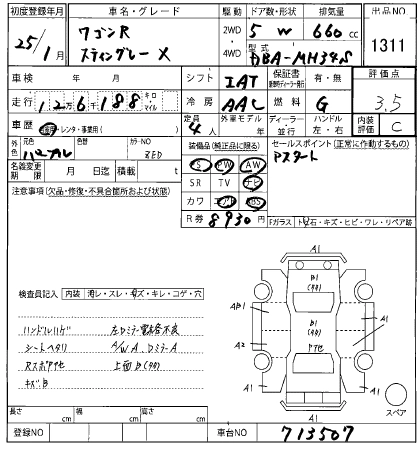 初度登録年月
車名・グレード
駆動
ドア数・形状
排気量
出品NO
25/1月
ワゴンR
スティングレー X
2WD
4WD
5 W
660 cc
型式
DBA-MH34S
1311
車検
年 月
シフト
IAT
保証書
有・無
評価点
3.5
走行
12万6千188
キロ・マイル
冷房
AAC
燃料
G
車歴
レンタ・事業用( )
定員
4人
外車モデル
年
ディーラー・並行
ハンドル
左・右
内装評価
C
外色
元色
パープル
色替
カラーNO
ZED
装備品(純正品に限る)
セールスポイント(正常に作動するもの)
Pスタート
名義変更期限
月 日迄
積載
t
PS
PW
AW
SR
TV
ナビ
カワ
エアB
ABS
R券
8930円
注意事項(欠品・修復・不具合箇所および状態)
Fガラス
トビ石・キズ・ヒビ・ワレ・リペア跡
検査員記入
内装
汚レ・スレ・キズ・キレ・コゲ・穴
ハンドルハゲ
左Dミラー電格不良
シートヘタリ
A/W A、DミラーA
キズB
上面B(タカ)
A1
A1
B1
(タカ)
AB1
A1
B1
(タカ)
A2
A1
A1
A1
スペア
長さ cm
幅 cm
高さ cm
登録NO
車台NO
713507